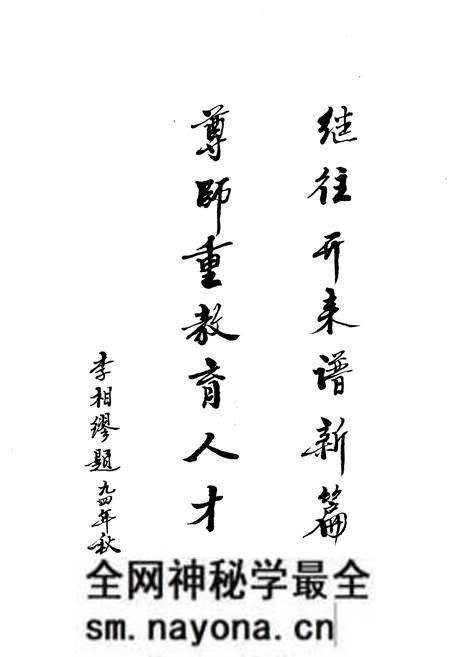 继往开来谱新篇
尊師重教育人才
李相缪题 九四年秋
全网神秘学最全
sm.nayona.cn